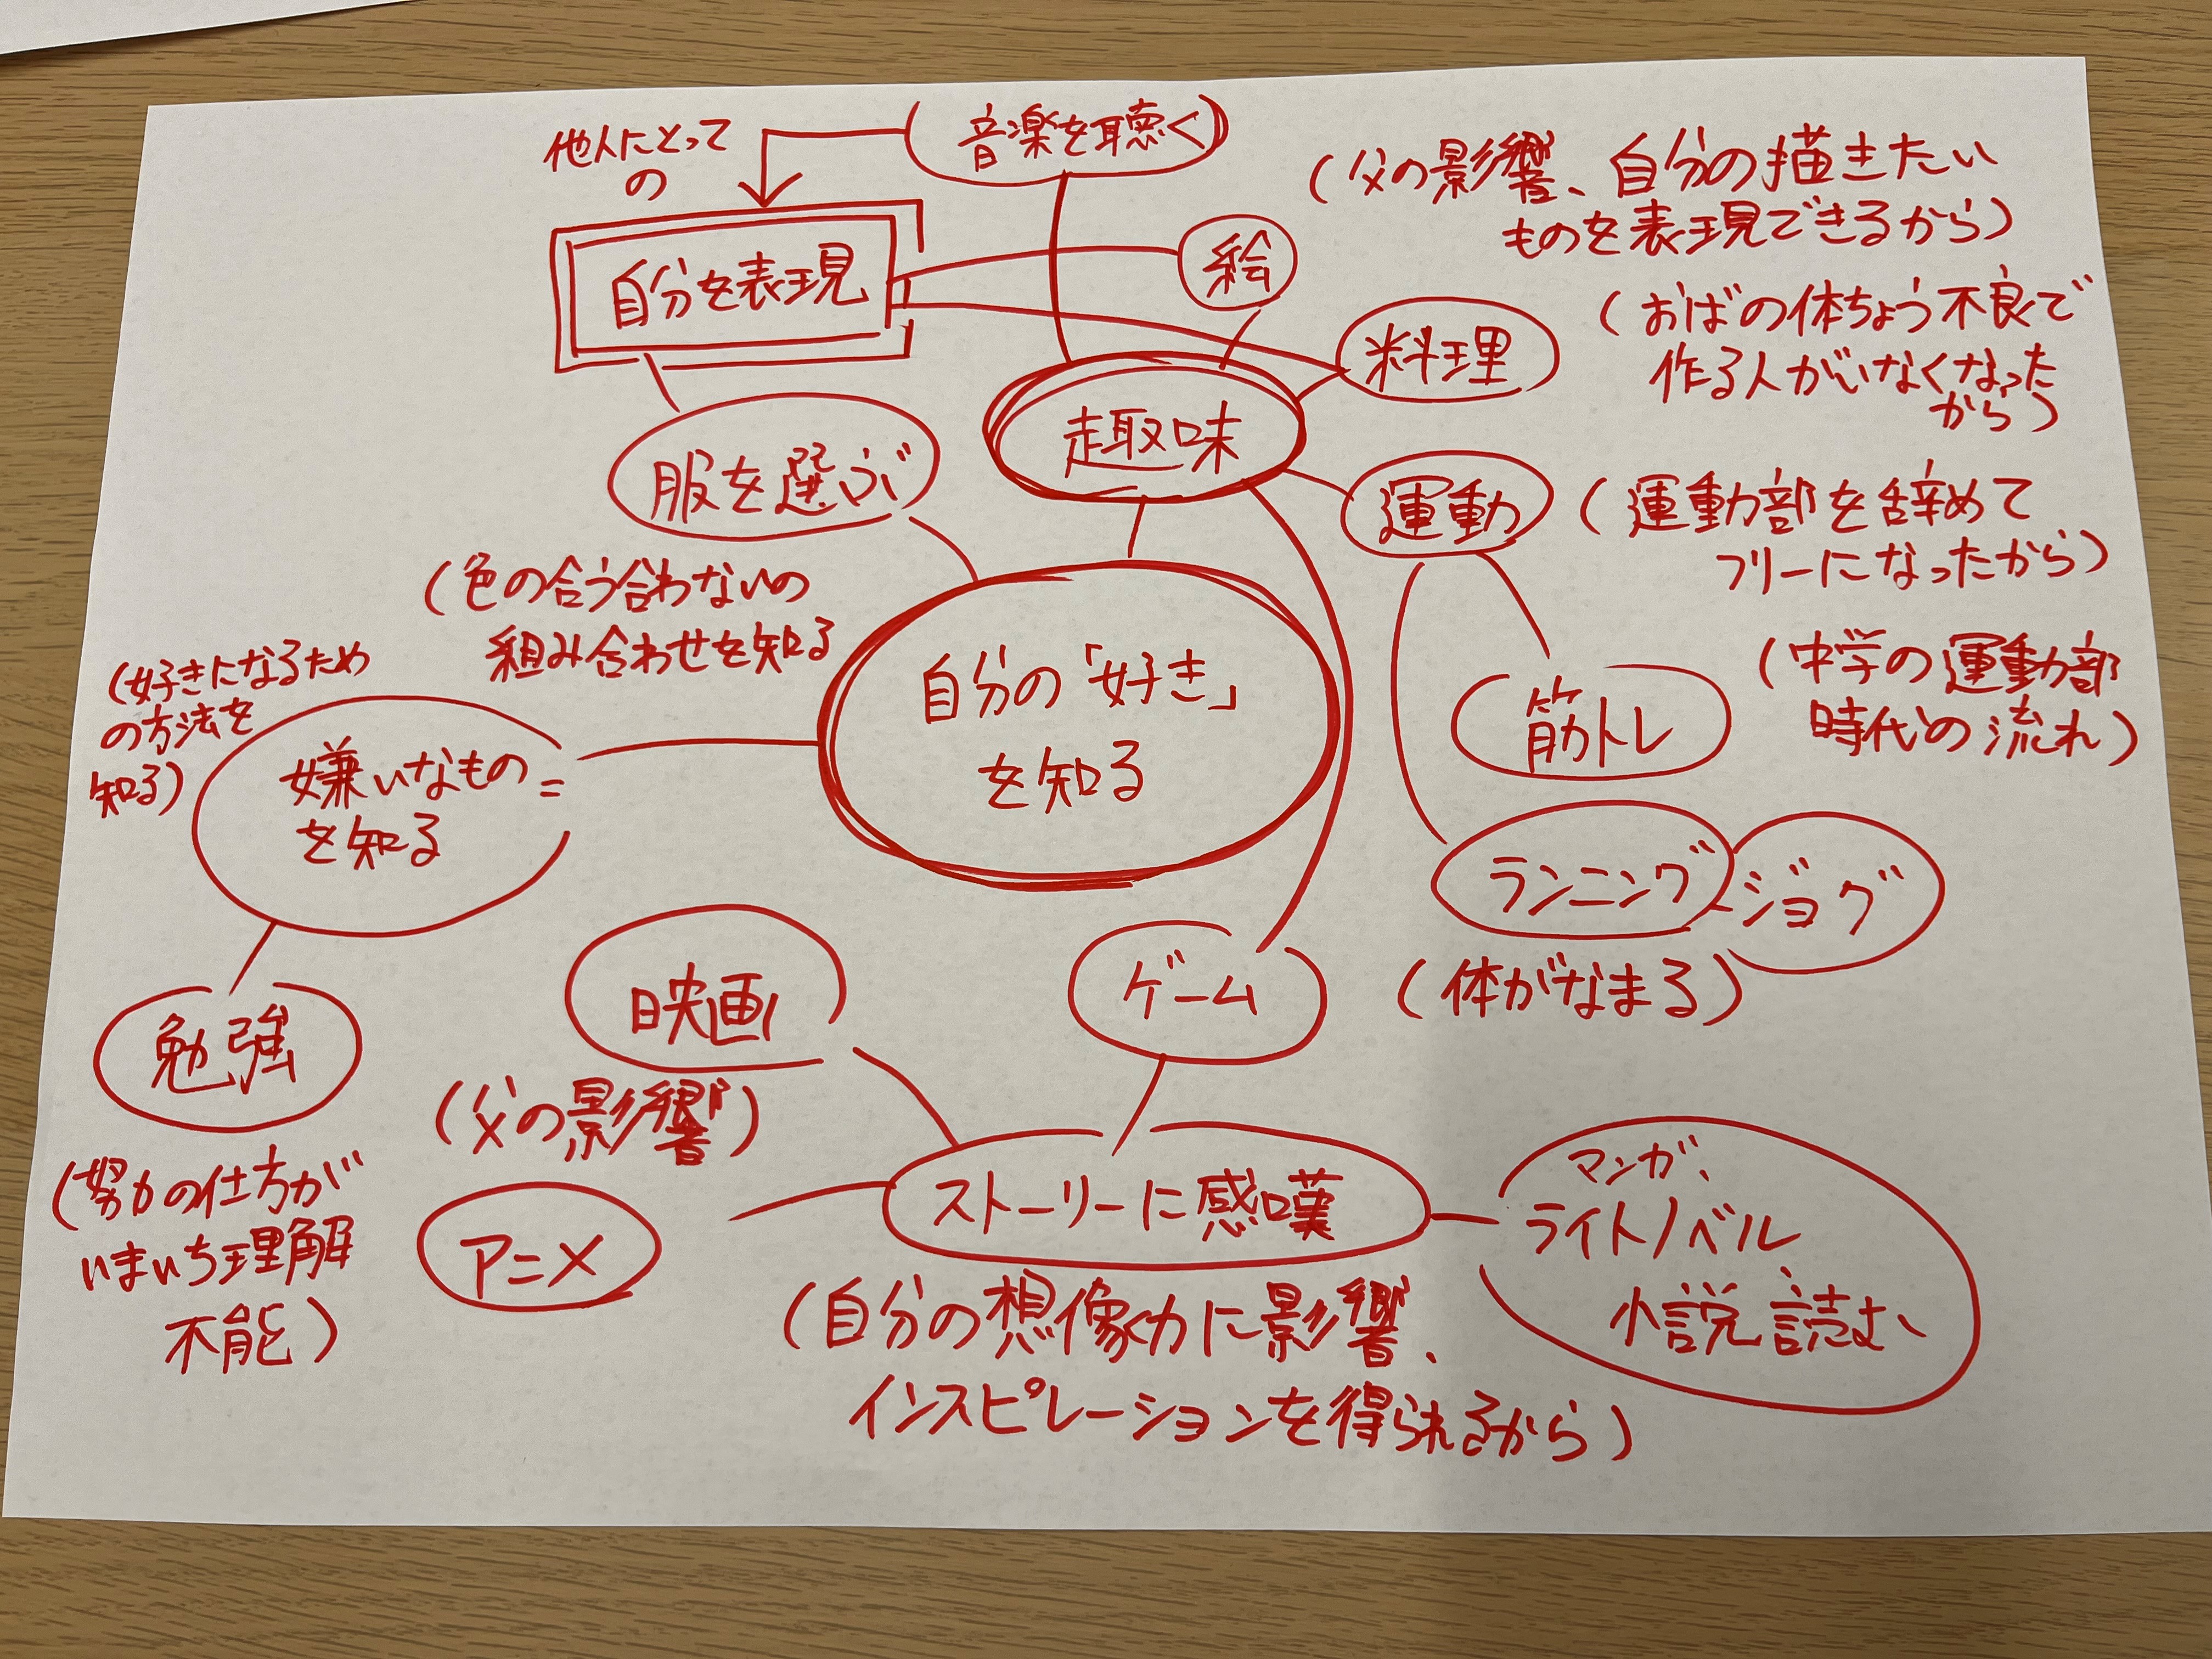 音楽を聴く
他人にとって
の
自分を表現
絵
(父の影響、自分の描きたい
ものを表現できるから)
料理
(おばの体ちょう不良で
作る人がいなくなった
から)
趣味
運動
(運動部を辞めて
フリーになったから)
服を選ぶ
(色の合う合わないの
組み合わせを知る
自分の「好き」
を知る
筋トレ
(中学の運動部
時代の流れ)
(好きになるため
の方法を
知る)
嫌いなもの=
を知る
ランニング
ジョグ
(体がなまる)
勉強
(努力の仕方が
いまいち理解
不能)
映画
(父の影響)
ゲーム
アニメ
ストーリーに感嘆
(自分の想像力に影響、
インスピレーションを得られるから)
マンガ、
ライトノベル
小説読む